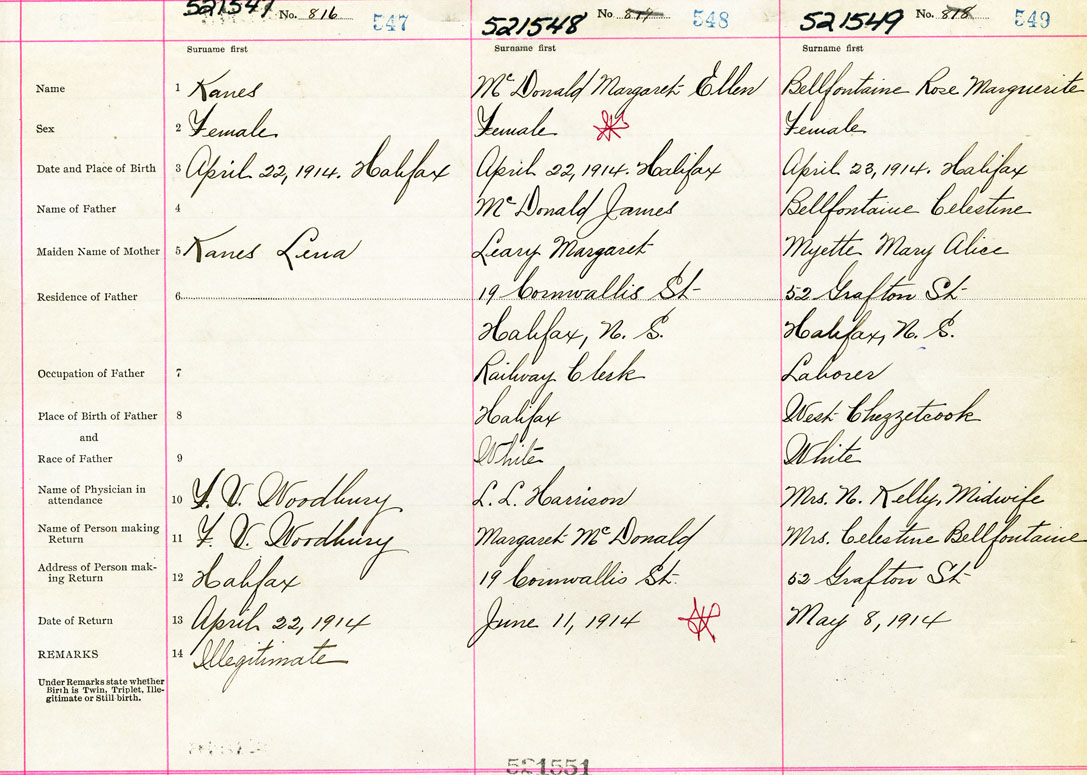 521547 No. 816 547
521548 No 817 548
521549 No. 818 549
Surname first Surname first Surname first
Name 1 Kanes McDonald Margaret Ellen Bellfontaine Rose Marguerite
Sex 2 Female Female Female
Date and Place of Birth 3 April 22, 1914. Halifax April 22, 1914. Halifax April 23, 1914. Halifax
Name of Father 4 McDonald James Bellfontaine Celestine
Maiden Name of Mother 5 Kanes Lena Leary Margaret Myette Mary Alice
Residence of Father 6 19 Cornwallis St 52 Grafton St
Halifax, N. S. Halifax, N. S.
Occupation of Father 7 Railway Clerk Laborer
Place of Birth of Father 8 Halifax West Chezzetcook
and
Race of Father 9 White White
Name of Physician in
attendance 10 F. V. Woodbury L. L. Harrison Mrs. N. Kelly, Midwife
Name of Person making
Return 11 F. V. Woodbury Margaret McDonald Mrs. Celestine Bellfontaine
Address of Person mak-
ing Return 12 Halifax 19 Cornwallis St. 52 Grafton St
Date of Return 13 April 22, 1914 June 11, 1914 May 8, 1914
REMARKS 14 Illegitimate
Under Remarks state whether
Birth is Twin, Triplet, Ille-
gitimate or Still birth.
521551